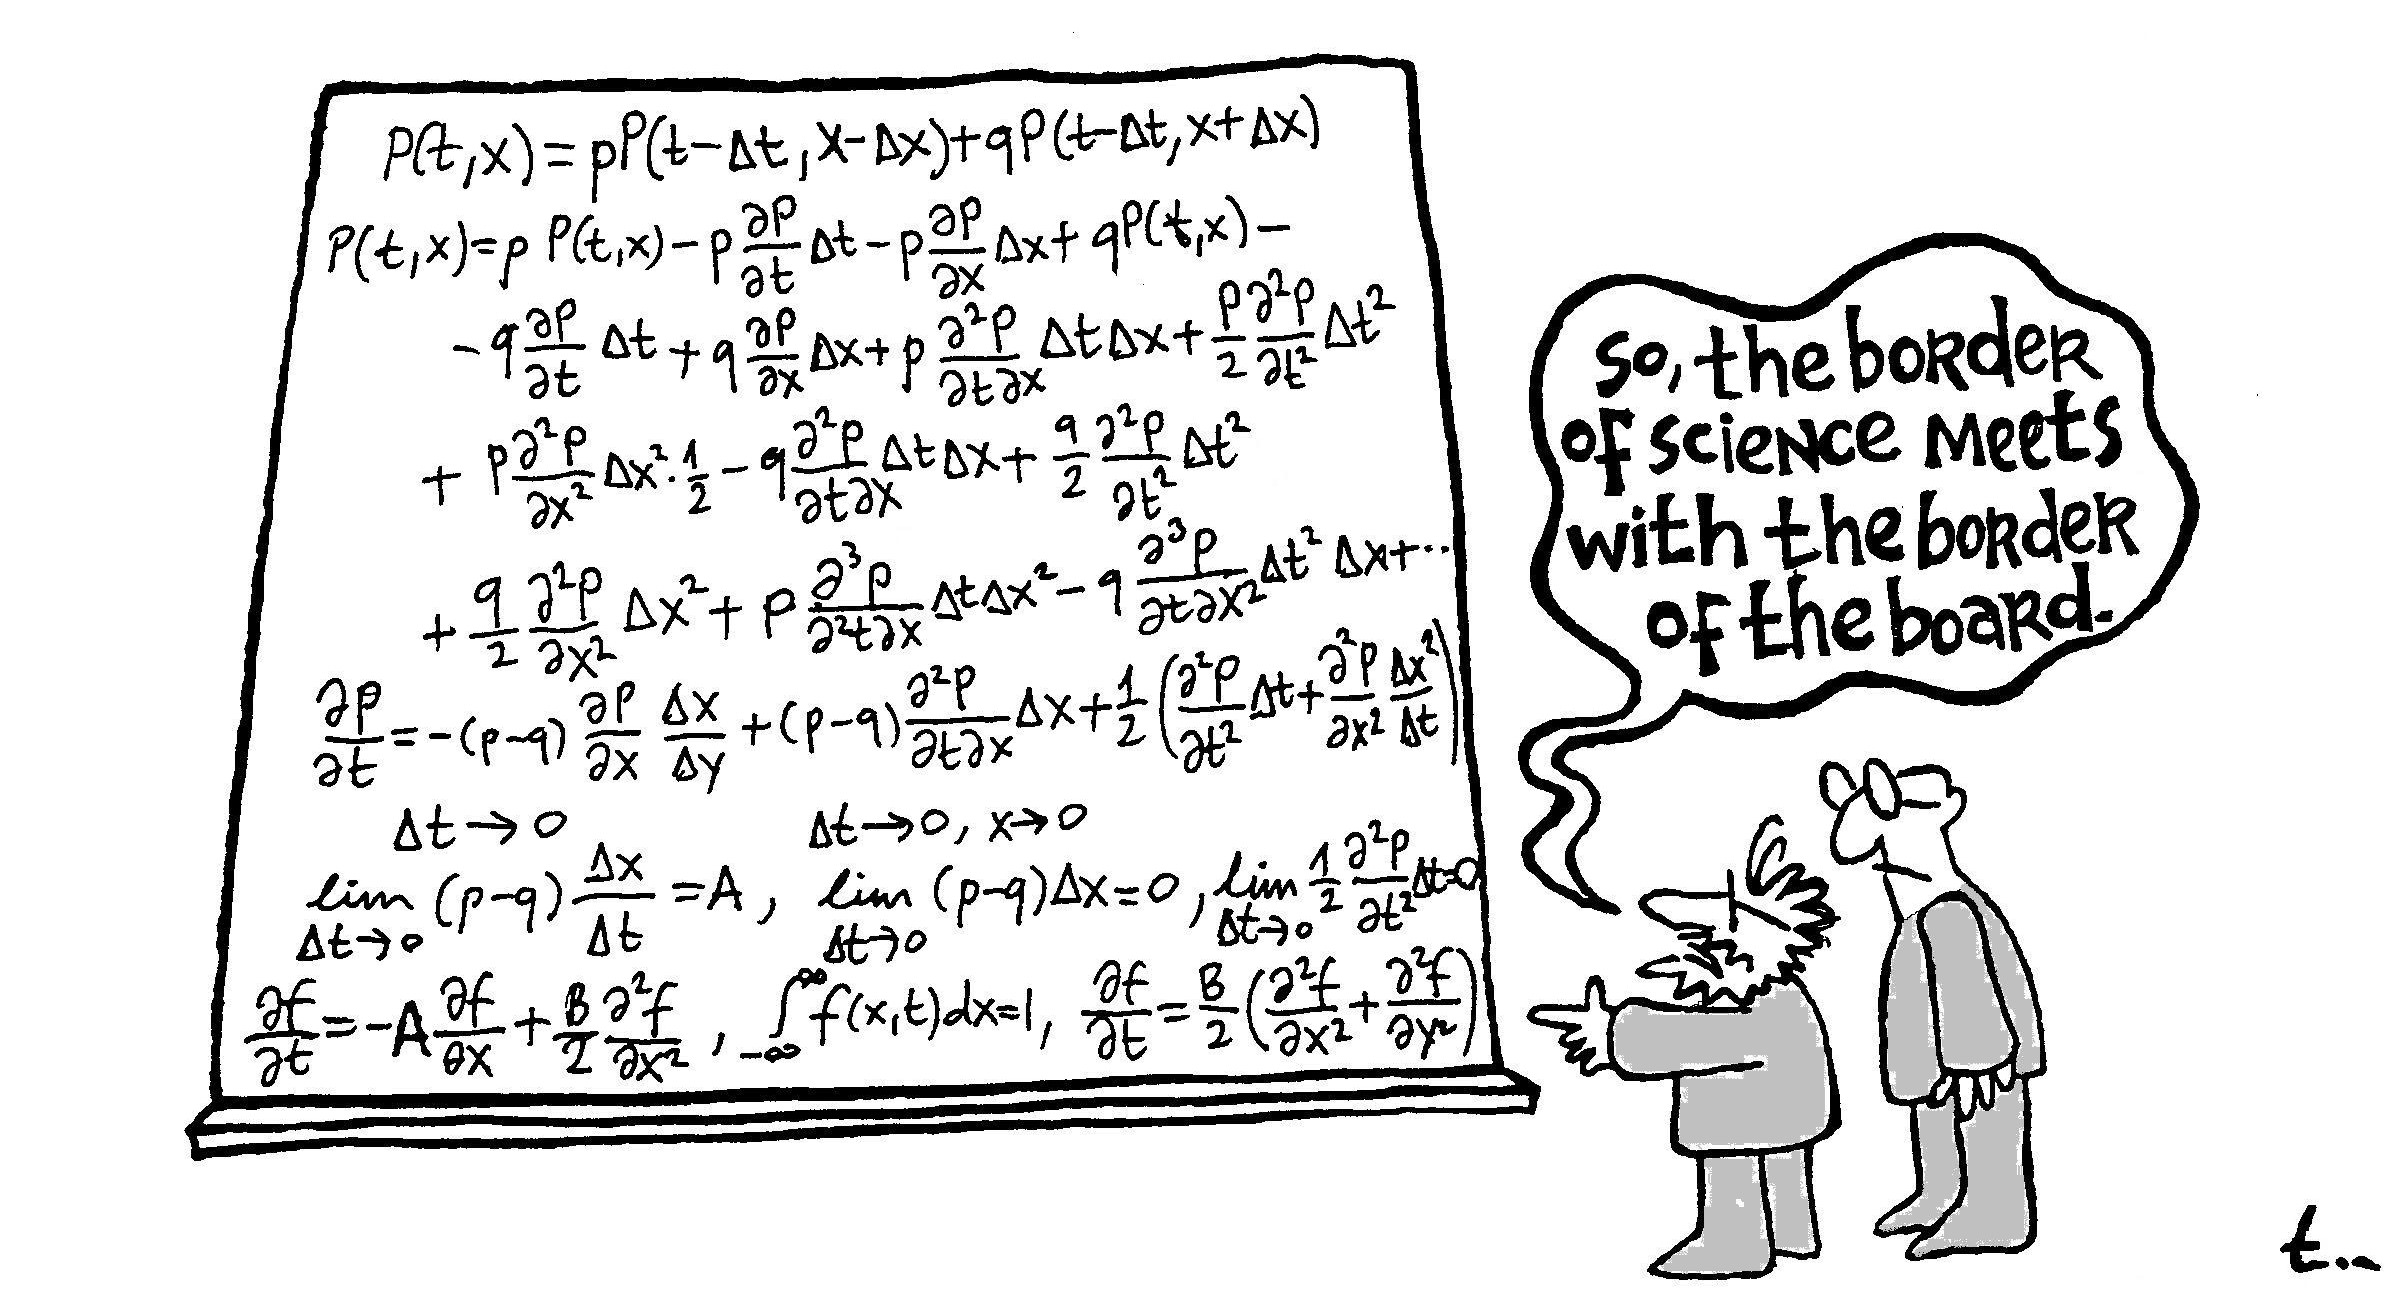 P(t,x)=pP(t-Δt,x-Δx)+qP(t-Δt,x+Δx)
P(t,x)=p P(t,x)-p ∂P/∂t Δt-p ∂P/∂x Δx+qP(t,x)-
-q ∂P/∂t Δt+q ∂P/∂x Δx+p ∂²P/∂t∂x ΔtΔx+p/2 ∂²P/∂t² Δt²
+p ∂²P/∂x² Δx²·1/2-q ∂²P/∂t∂x ΔtΔx+q/2 ∂²P/∂t² Δt²
+q/2 ∂²P/∂x² Δx²+p ∂³P/∂²t∂x ΔtΔx²-q ∂³P/∂t∂x² Δt²Δx+··
∂P/∂t=-(p-q) ∂P/∂x Δx/Δy+(p-q) ∂²P/∂t∂x Δx+1/2(∂²P/∂t² Δt+∂²P/∂x² Δx²/Δt)
Δt→0 Δt→0, x→0
lim Δt→0 (p-q) Δx/Δt=A, lim Δt→0 (p-q)Δx=0, lim Δt→0 1/2 ∂²P/∂t² Δt=0
∂f/∂t=-A ∂f/∂x+B/2 ∂²f/∂x², ∫-∞ ∞ f(x,t)dx=1, ∂f/∂t=B/2(∂²f/∂x²+∂²f/∂y²)
So, the border
of science meets
with the border
of the board.
t...